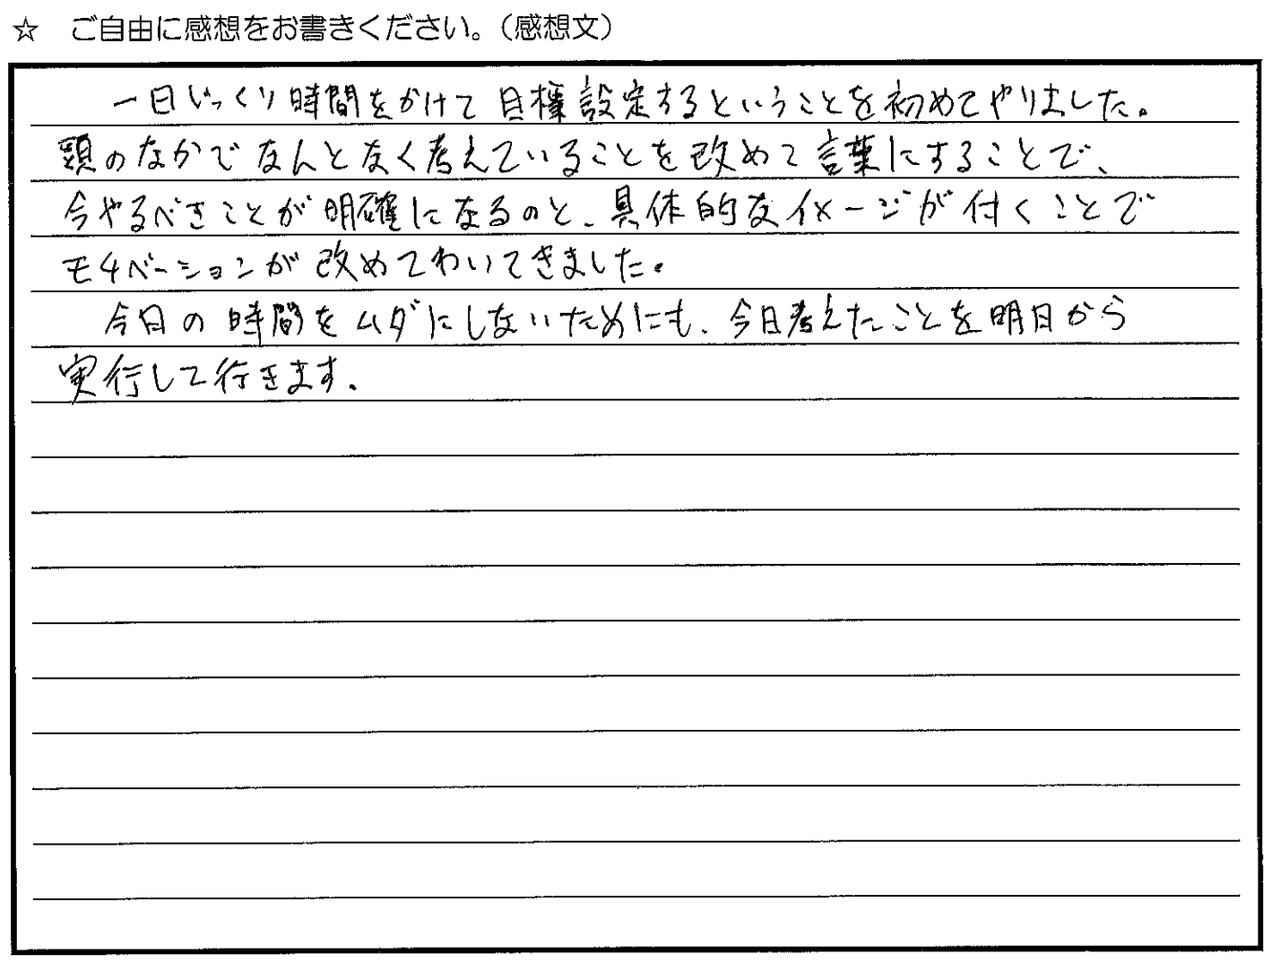 ☆ ご自由に感想をお書きください。（感想文）
一日じっくり時間をかけて目標設定するということを初めてやりました。
頭のなかでなんとなく考えていることを改めて言葉にすることで、
今やるべきことが明確になるのと、具体的なイメージが付くことで
モチベーションが改めてわいてきました。
今日の時間をムダにしないためにも、今日考えたことを明日から
実行して行きます。